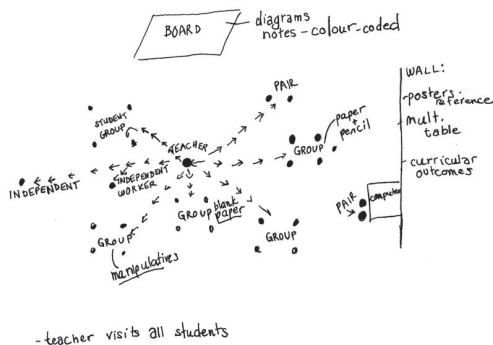 BOARD
diagrams
notes - colour-coded
PAIR
WALL:
- posters -
reference
- mult.
table
- curricular
outcomes
STUDENT
GROUP
TEACHER
GROUP
paper
+
pencil
INDEPENDENT
INDEPENDENT
WORKER
PAIR
computer
GROUP
manipulatives
GROUP
blank
paper
GROUP
- teacher visits all students